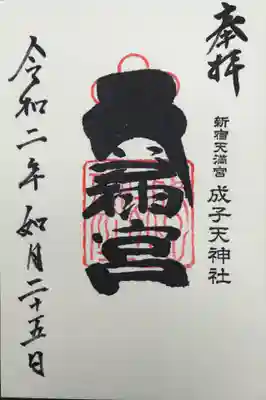 奉拝
新宿天満宮 成子天神社
天満宮
令和二年 如月二十五日